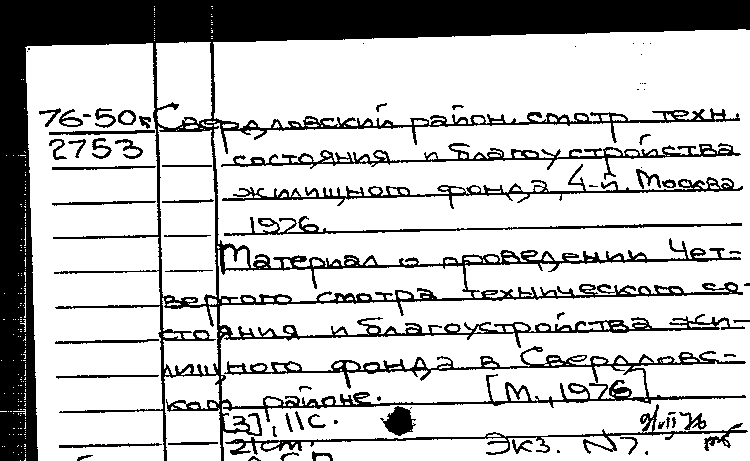 76-50к Свердловский район. смотр техн.
2753 состояния и благоустройства
жилищного фонда, 4-й. Москва.
1976.
Материал о проведении Чет-
вертого смотра технического со-
стояния и благоустройства жи-
лищного фонда в Свердловс-
ком районе. [М., 1976].
[3], 11 с.
21 см. Экз. N7.